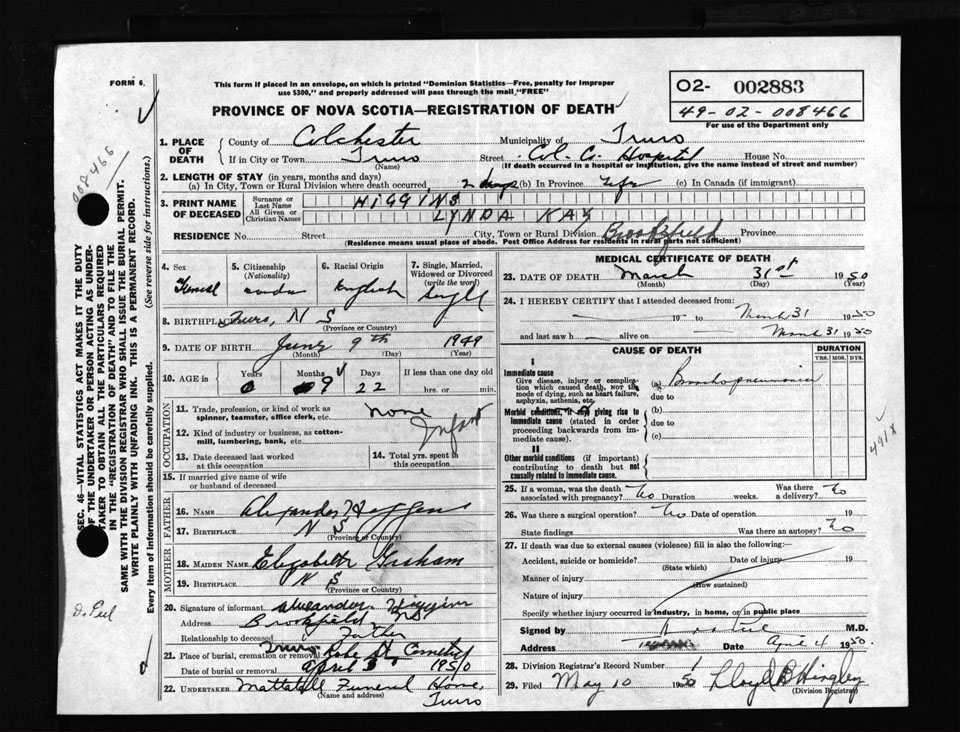 FORM 6.
This form if placed in an envelope, on which is printed "Dominion Statistics—Free, penalty for improper
use $300," and properly addressed will pass through the mail "FREE"
O2- 002883
49-02-008466
For use of the Department only
PROVINCE OF NOVA SCOTIA—REGISTRATION OF DEATH
008466
1. PLACE OF DEATH
County of Colchester Municipality of Truro
If in City or Town Truro Street Col. Co. Hospital House No.
(Name) (If death occurred in a hospital or institution, give the name instead of street and number)
2. LENGTH OF STAY (in years, months and days)
(a) In City, Town or Rural Division where death occurred, 2 days (b) In Province life (c) In Canada (if immigrant)
3. PRINT NAME OF DECEASED
Surname or Last Name HIGGINS
All Given or Christian Names LYNDA KAY
RESIDENCE No. Street City, Town or Rural Division Brookfield Province
(Residence means usual place of abode. Post Office Address for residents in rural parts not sufficient)
4. Sex 5. Citizenship (Nationality) 6. Racial Origin 7. Single, Married, Widowed or Divorced (write the word)
English
8. BIRTHPLACE Truro, N S
(Province or Country)
9. DATE OF BIRTH June 9th 1949
(Month) (Day) (Year)
10. AGE in Years Months Days If less than one day old
0 9 22 hrs. or min.
OCCUPATION
11. Trade, profession, or kind of work as spinner, teamster, office clerk, etc. none
12. Kind of industry or business, as cotton-mill, lumbering, bank, etc. Infant
13. Date deceased last worked at this occupation
14. Total yrs. spent in this occupation
15. If married give name of wife or husband of deceased
FATHER
16. NAME Alexander Higgins
17. BIRTHPLACE N S
(Province or Country)
MOTHER
18. MAIDEN NAME Elizabeth Graham
19. BIRTHPLACE N S
20. Signature of informant Alexander Higgins
Address Brookfield NS
Relationship to deceased Father
21. Place of burial, cremation or removal Truro Robie St Cemetery
Date of burial or removal April 3 1950
22. UNDERTAKER Mattatall Funeral Home,
(Name and address) Truro
MEDICAL CERTIFICATE OF DEATH
23. DATE OF DEATH March 31st 1950
(Month) (Day) (Year)
24. I HEREBY CERTIFY that I attended deceased from
19 to March 31 1950
and last saw h alive on March 31 1950
CAUSE OF DEATH
DURATION
YRS. MOS. DYS.
I
Immediate cause
Give disease, injury or complication which caused death, NOT the mode of dying, such as heart failure, asphyxia, asthenia, etc.
(a) Bronchopneumonia
due to
Morbid conditions, if any giving rise to immediate cause (stated in order proceeding backwards from immediate cause).
(b)
due to
(c)
II
Other morbid conditions (if important) contributing to death but not causally related to immediate cause.
491X
25. If a woman, was the death associated with pregnancy? No Duration weeks. Was there a delivery? No
26. Was there a surgical operation? No Date of operation 19
State findings Was there an autopsy? No
27. If death was due to external causes (violence) fill in also the following:—
Accident, suicide or homicide? Date of injury 19
(State which)
Manner of injury
(How sustained)
Nature of injury
Specify whether injury occurred in industry, in home, or in public place
Signed by M.D.
Address Date April 4 1950.
28. Division Registrar's Record Number 1
29. Filed May 10 1950 Lloyd B Hingley
(Division Registrar)
SEC. 46—VITAL STATISTICS ACT MAKES IT THE DUTY
OF THE UNDERTAKER OR PERSON ACTING AS UNDERTAKER TO OBTAIN ALL THE PARTICULARS REQUIRED
IN THE "REGISTRATION OF DEATH" AND TO FILE THE
SAME WITH THE DIVISION REGISTRAR WHO SHALL ISSUE THE BURIAL PERMIT.
WRITE PLAINLY WITH UNFADING INK. THIS IS A PERMANENT RECORD.
Every item of information should be carefully supplied. (See reverse side for instructions.)
D. Peel